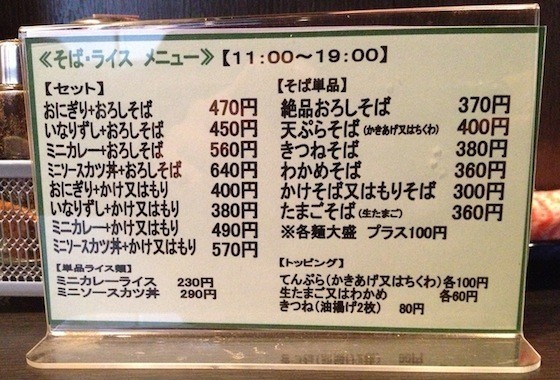 ≪そば・ライス メニュー≫【11:00〜19:00】
【セット】
おにぎり+おろしそば 470円
いなりずし+おろしそば 450円
ミニカレー+おろしそば 560円
ミニソースカツ丼+おろしそば 640円
おにぎり+かけ又はもり 400円
いなりずし+かけ又はもり 380円
ミニカレー+かけ又はもり 490円
ミニソースカツ丼+かけ又はもり 570円
【単品ライス類】
ミニカレーライス 230円
ミニソースカツ丼 290円
【そば単品】
絶品おろしそば 370円
天ぷらそば(かきあげ又はちくわ) 400円
きつねそば 380円
わかめそば 360円
かけそば又はもりそば 300円
たまごそば(生たまご) 360円
※各麺大盛 プラス100円
【トッピング】
てんぷら(かきあげ又はちくわ)各100円
生たまご又はわかめ 各60円
きつね(油揚げ2枚) 80円